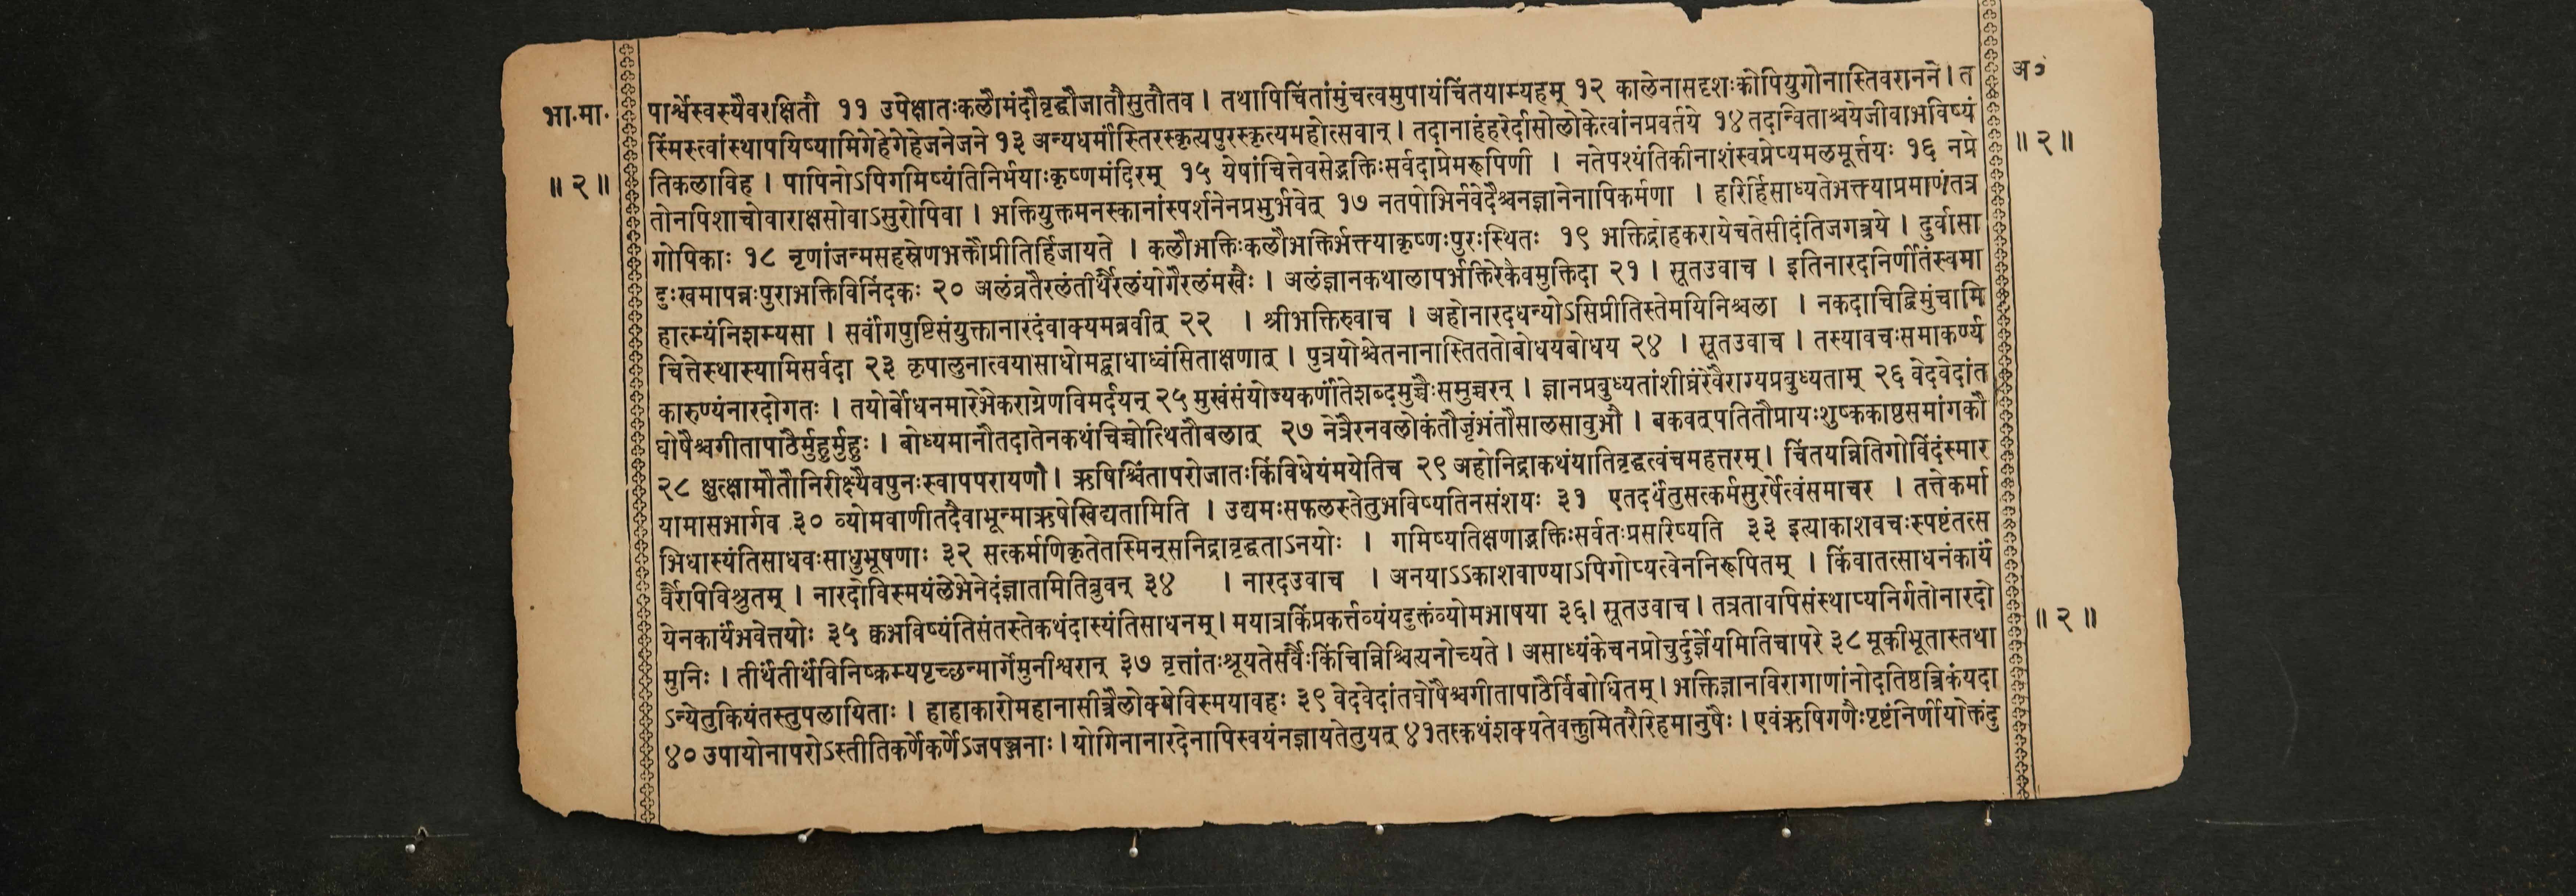 भा.मा.
॥ २ ॥
पार्श्वेस्वस्यैवरक्षितौ ११ उपेक्षातःकलौमंदौवृद्धौजातौसुतौतव । तथापिचिंतांमुंचत्वमुपायंचिंतयाम्यहम् १२ कालेनासदृशःकोपियुगोनास्तिवरानने । त
स्मिंस्त्वांस्थापयिष्यामिगेहेगेहेजनेजने १३ अन्यधर्मांस्तिरस्कृत्यपुरस्कृत्यमहोत्सवान् । तदानाहंहरेर्दासोलोकेत्वांनप्रवर्तये १४ तदन्विताश्चयेजीवाभविष्यं
तिकलाविह । पापिनोऽपिगमिष्यंतिनिर्भयाःकृष्णमंदिरम् १५ येषांचित्तेवसेद्भक्तिःसर्वदाप्रेमरूपिणी । नतेपश्यंतिकीनाशंस्वप्नेप्यमलमूर्त्तयः १६ नप्रे
तोनपिशाचोवाराक्षसोवाऽसुरोपिवा । भक्तियुक्तमनस्कानांस्पर्शनेनप्रभुर्भवेत् १७ नतपोभिर्नवेदैश्चनज्ञानेनापिकर्मणा । हरिर्हिसाध्यतेभक्त्याप्रमाणंतत्र
गोपिकाः १८ नृणांजन्मसहस्रेणभक्तौप्रीतिर्हिजायते । कलौभक्तिःकलौभक्तिर्भक्त्याकृष्णःपुरःस्थितः १९ भक्तिद्रोहकरायेचतेसीदंतिजगत्त्रये । दुर्वासा
दुःखमापन्नःपुराभक्तिविनिंदकः २० अलंव्रतैरलंतीर्थैरलंयोगैरलंमखैः । अलंज्ञानकथालापर्भक्तिरेकैवमुक्तिदा २१ । सूतउवाच । इतिनारदनिर्णीतंस्वमा
हात्म्यंनिशम्यसा । सर्वांगपुष्टिसंयुक्तानारदंवाक्यमब्रवीत् २२ । श्रीभक्तिरुवाच । अहोनारदधन्योऽसिप्रीतिस्तेमयिनिश्चला । नकदाचिद्विमुंचामि
चित्तेस्थास्यामिसर्वदा २३ कृपालुनात्वयासाधोमद्बाधाध्वंसिताक्षणात् । पुत्रयोश्चेतनानास्तिततोबोधयबोधय २४ । सूतउवाच । तस्यावचःसमाकर्ण्य
कारुण्यंनारदोगतः । तयोर्बोधनमारेभेकराग्रेणविमर्दयन् २५ मुखंसंयोज्यकर्णांतेशब्दमुच्चैःसमुच्चरन् । ज्ञानप्रबुध्यतांशीघ्रंरेवैराग्यप्रबुध्यताम् २६ वेदवेदांत
घोषैश्चगीतापाठैर्मुहुर्मुहुः । बोध्यमानौतदातेनकथंचिच्चोत्थितौबलात् २७ नेत्रैरनवलोकंतौजृंभंतौसालसावुभौ । बकवत्पतितौप्रायःशुष्ककाष्ठसमांगकौ
२८ क्षुत्क्षामौतौनिरीक्ष्यैवपुनःस्वापपरायणौ । ऋषिश्चिंतापरोजातःकिंविधेयंमयेतिच २९ अहोनिद्राकथंयातिवृद्धत्वंचमहत्तरम् । चिंतयन्नितिगोविंदंस्मार
यामासभार्गव ३० व्योमवाणीतदैवाभून्माऋषेखिद्यतामिति । उद्यमःसफलस्तेतुभविष्यतिनसंशयः ३१ एतदर्थंतुसत्कर्मसुरर्षेत्वंसमाचर । तत्तेकर्मा
भिधास्यंतिसाधवःसाधुभूषणाः ३२ सत्कर्मणिकृतेतस्मिन्सनिद्रावृद्धताऽनयोः । गमिष्यतिक्षणाद्भक्तिःसर्वतःप्रसरिष्यति ३३ इत्याकाशवचःस्पष्टंतत्स
र्वैरपिविश्रुतम् । नारदोविस्मयंलेभेनेदंज्ञातामितिब्रुवन् ३४ । नारदउवाच । अनयाऽऽकाशवाण्याऽपिगोप्यत्वेननिरूपितम् । किंवातत्साधनंकार्यं
येनकार्यंभवेत्तयोः ३५ क्वभविष्यंतिसंतस्तेकथंदास्यंतिसाधनम् । मयात्रकिंप्रकर्त्तव्यंयदुक्तंव्योमभाषया ३६। सूतउवाच । तत्रतावापिसंस्थाप्यनिर्गतोनारदो
मुनिः । तीर्थंतीर्थंविनिष्क्रम्यपृच्छन्मार्गेमुनीश्वरान् ३७ वृत्तांतःश्रूयतेसर्वैःकिंचिन्निश्चित्यनोच्यते । असाध्यंकेचनप्रोचुर्दुर्ज्ञेयमितिचापरे ३८ मूकीभूतास्तथा
ऽन्येतुकियंतस्तुपलायिताः । हाहाकारोमहानासीत्त्रैलोक्येविस्मयावहः ३९ वेदवेदांतघोषैश्चगीतापाठैर्विबोधितम् । भक्तिज्ञानविरागाणांनोदतिष्ठन्त्रिकंयदा
४० उपायोनापरोऽस्तीतिकर्णेकर्णेऽजपञ्जनाः । योगिनानारदेनापिस्वयंनज्ञायतेतुयत् ४१ तत्कथंशक्यतेवक्तुमितरैरिहमानुषैः । एवंऋषिगणैःपृष्टंनिर्णीयोक्तंदु
अ०
॥ २ ॥
॥ २ ॥